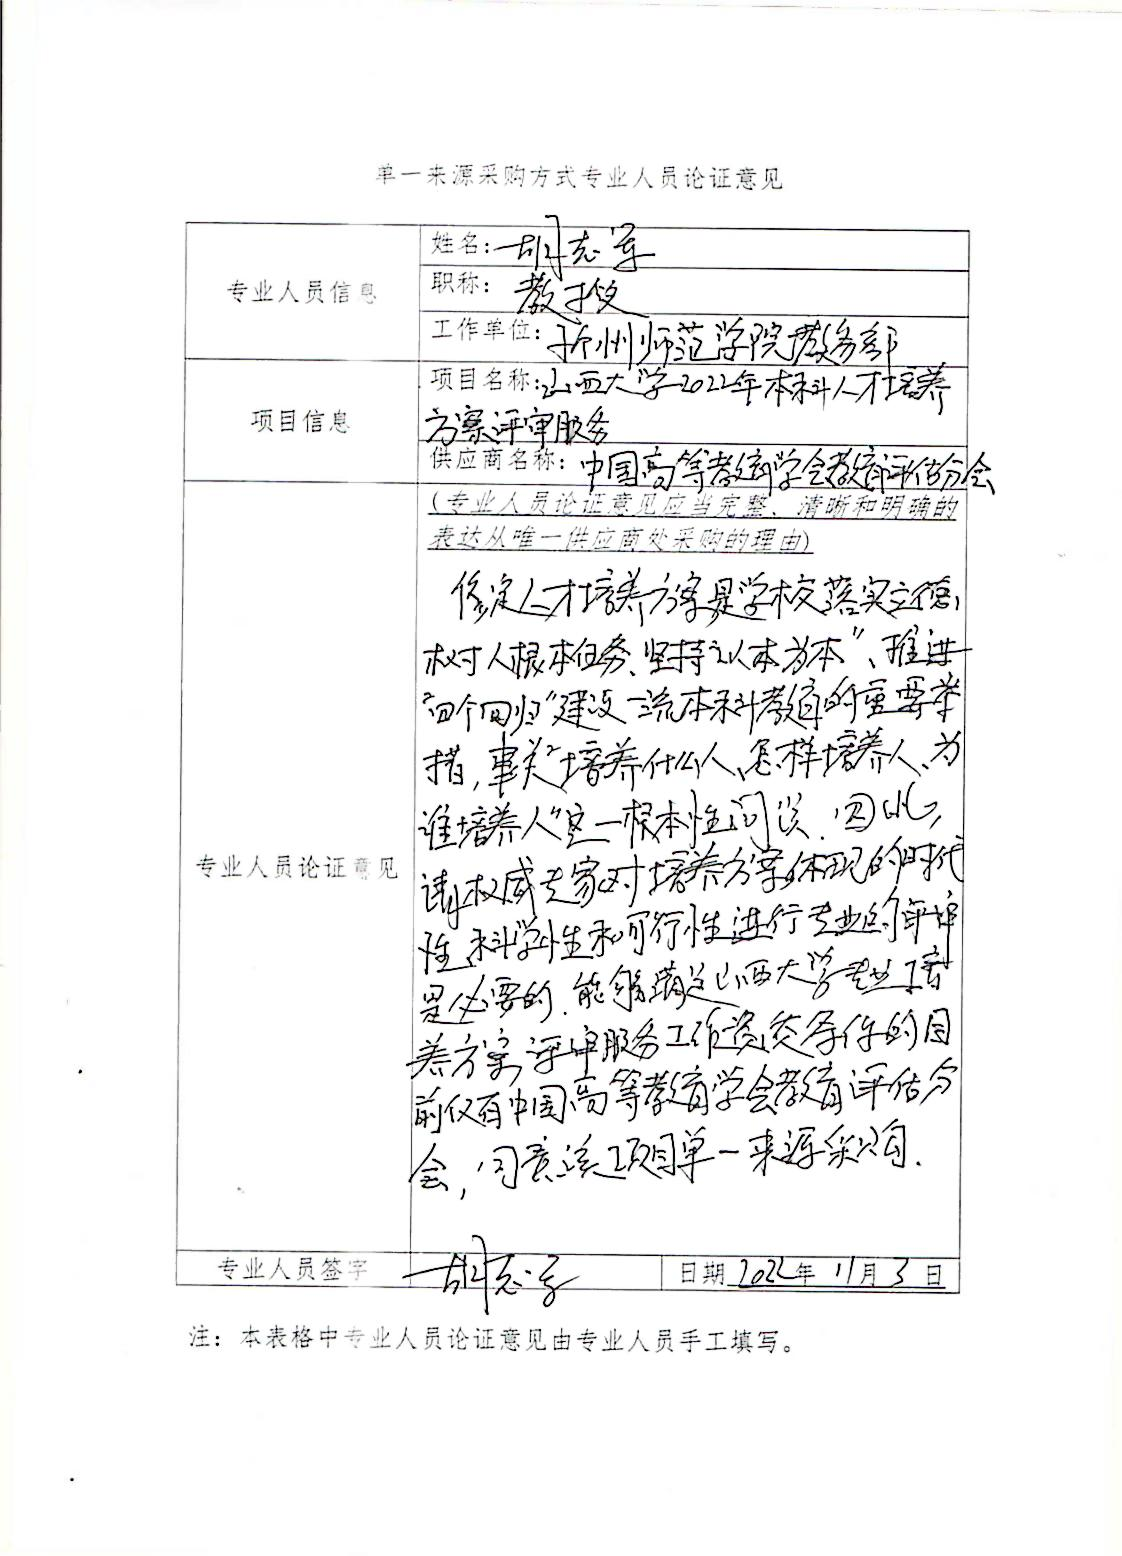 单一来源采购方式专业人员论证意见
专业人员信息
姓名：胡志军
职称：教授
工作单位：忻州师范学院教务部
项目信息
项目名称：山西大学2022年本科人才培养
方案评审服务
供应商名称：中国高等教育学会教育评估分会
专业人员论证意见
（专业人员论证意见应当完整、清晰和明确的
表达从唯一供应商处采购的理由）
修定人才培养方案是学校落实立德
树人根本任务、坚持“以本为本”、推进
“四个回归”建设一流本科教育的重要举
措，事关“培养什么人、怎样培养人、为
谁培养人”这一根本性问题．因此，
请权威专家对培养方案体现的时代
性、科学性和可行性进行专业的评审
是必要的．能够满足山西大学专业培
养方案评审服务工作资质条件的目
前仅有中国高等教育学会教育评估分
会，同意该项目单一来源采购．
专业人员签字
胡志军
日期 2022年 11月 3日
注：本表格中专业人员论证意见由专业人员手工填写。